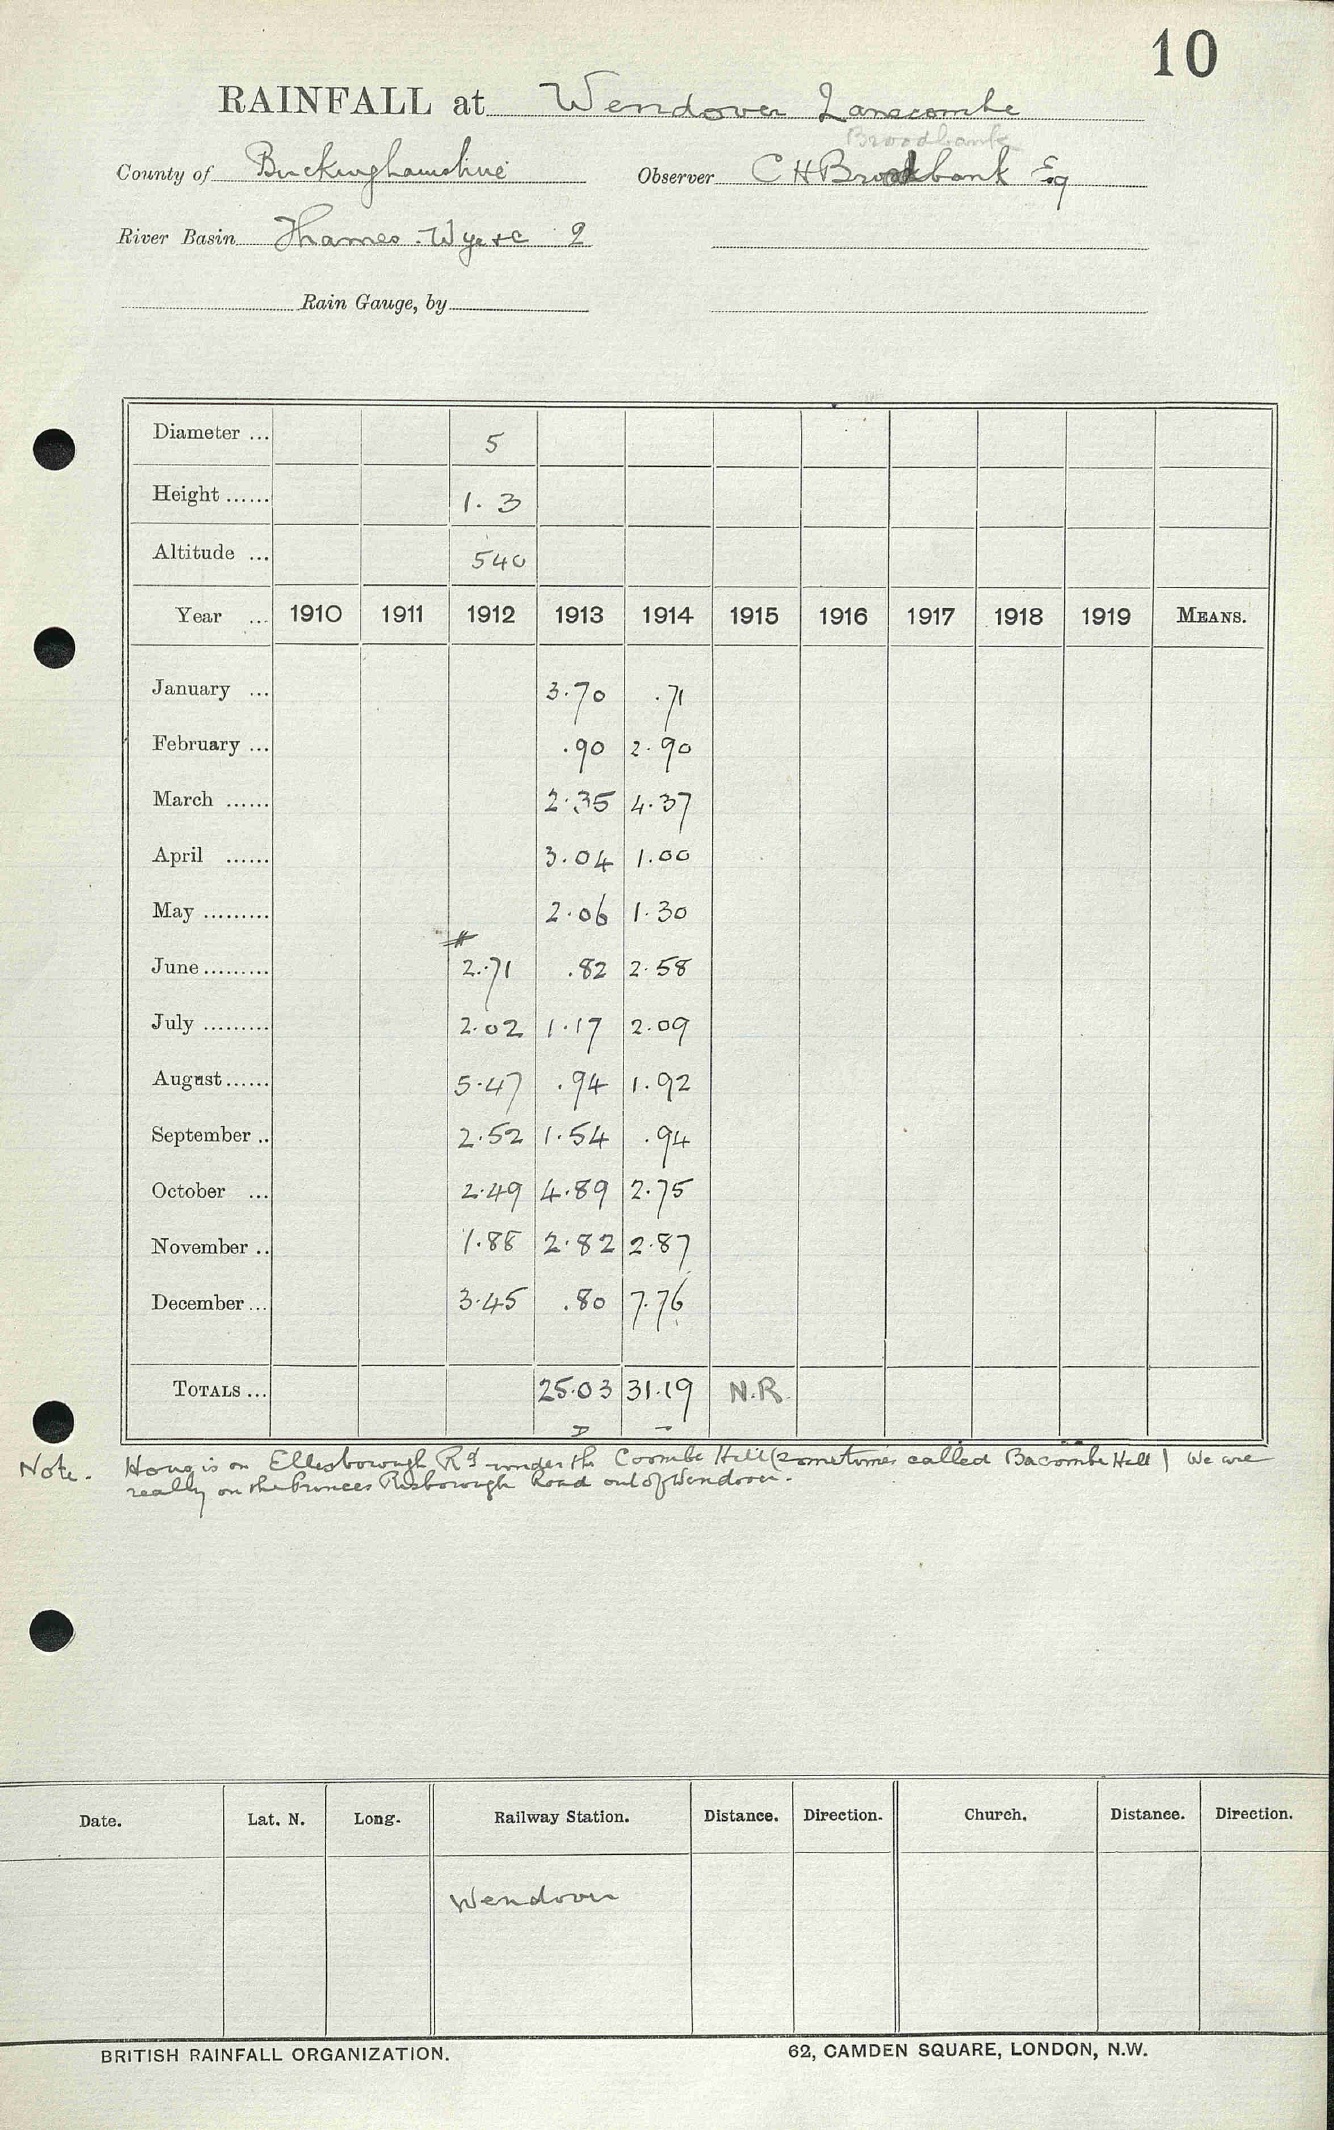 10
RAINFALL at Wendover Lanscombe
Broodbank
County of Buckinghamshire Observer C H Broodbank Esq
River Basin Thames. Wye &c 2
Rain Gauge, by
Diameter ... 5
Height ...... 1.3
Altitude ... 540
Year ... 1910 1911 1912 1913 1914 1915 1916 1917 1918 1919 MEANS.
January ... 3.70 .71
February ... .90 2.90
March ...... 2.35 4.37
April ...... 3.04 1.00
May ......... 2.06 1.30
#
June ......... 2.71 .82 2.58
July ......... 2.02 1.17 2.09
August...... 5.47 .94 1.92
September .. 2.52 1.54 .94
October ... 2.49 4.89 2.75
November .. 1.88 2.82 2.87
December ... 3.45 .80 7.76
TOTALS ... 25.03 31.19 N.R.
Note. is on Ellesborough Rd under the Coombe Hill (sometimes called Bacombe Hill) We are
really on the Princes Risborough Road out of Wendover.
Date. Lat. N. Long. Railway Station. Distance. Direction. Church. Distance. Direction.
Wendover
BRITISH RAINFALL ORGANIZATION. 62, CAMDEN SQUARE, LONDON, N.W.